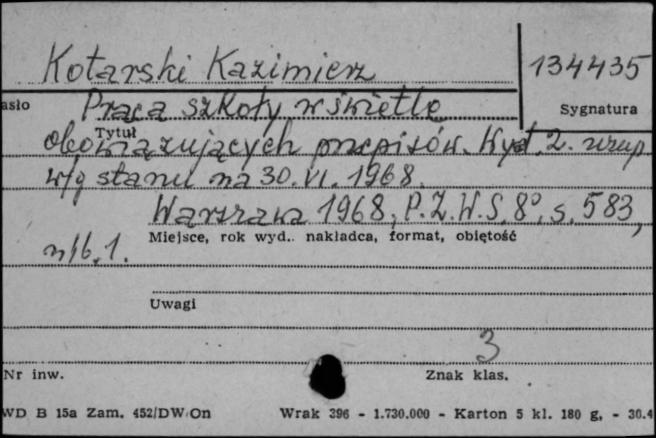 Kotarski Kazimierz 134435
asło Praca szkoły w świetle Sygnatura
Tytuł
obowiązujących przepisów. Wyd. 2. uzup
w/g stanu na 30.VI.1968.
Warszawa 1968, P.Z.W.S. 8°, s. 583,
nlb. 1. Miejsce, rok wyd.. nakładca, format, obiętość
Uwagi
3
Nr inw. Znak klas.
WD B 15a Zam. 452/DW On Wrak 396 - 1.730.000 - Karton 5 kl. 180 g, - 30.4